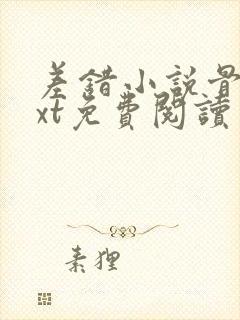 差錯小説骨
xt免費閱讀
素狸